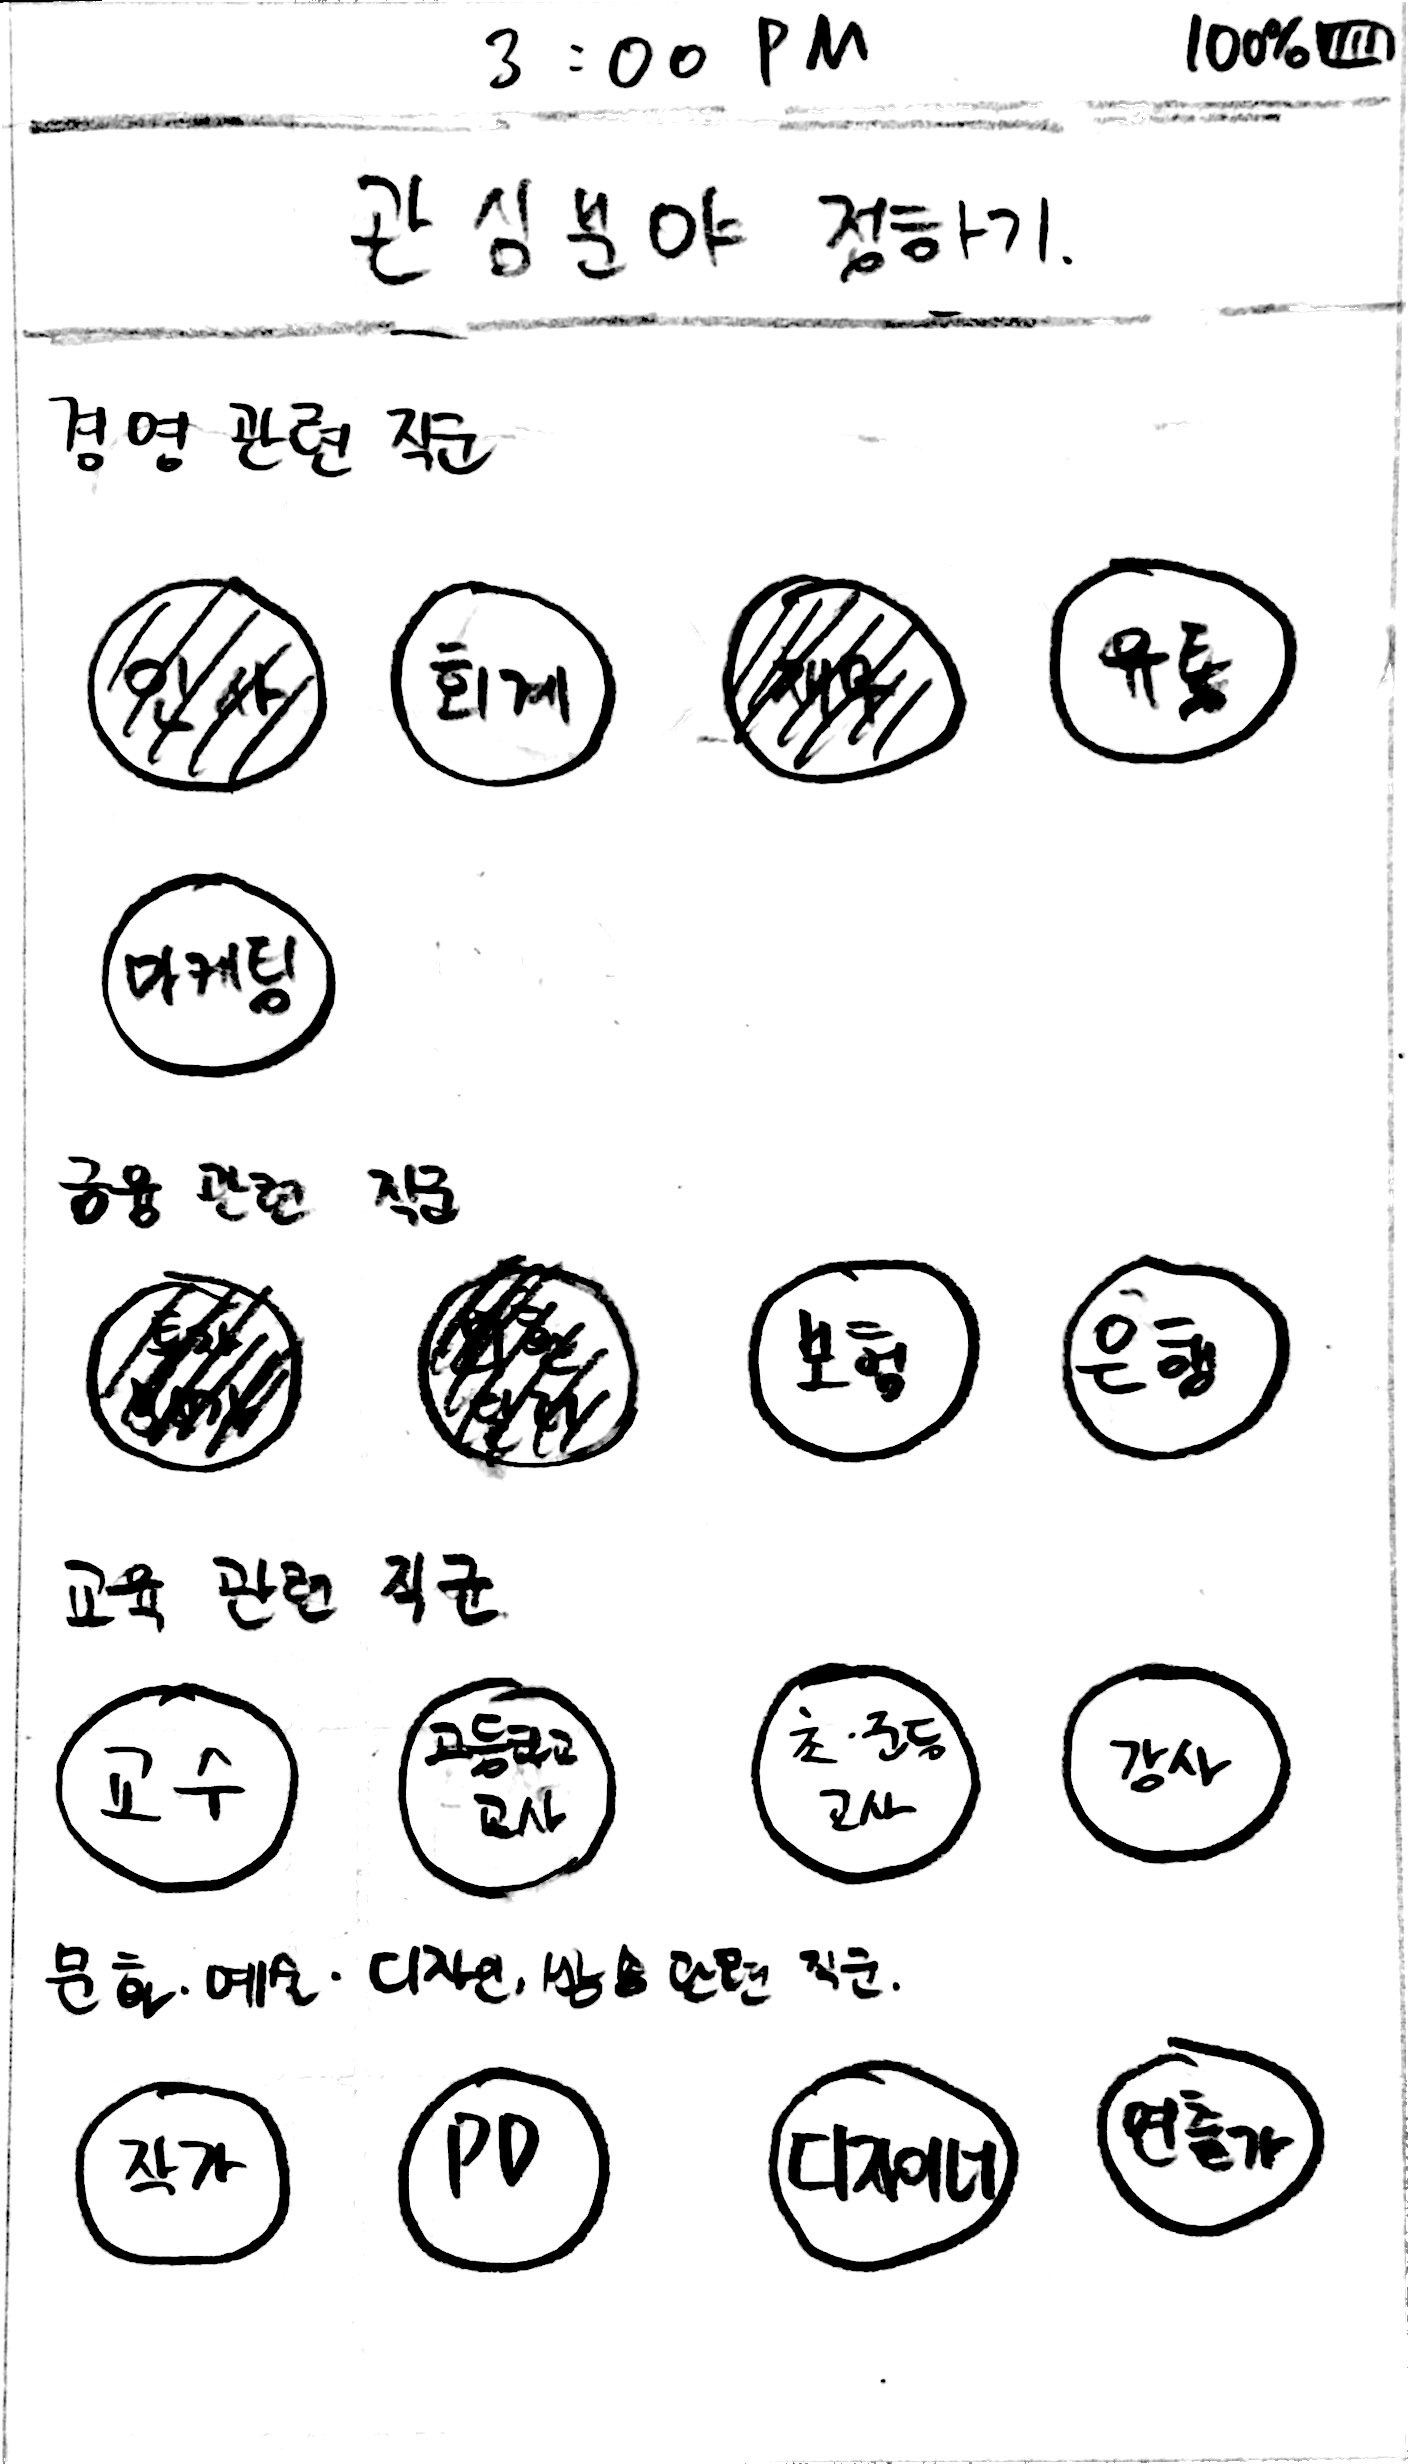 3:00 PM 100%
관심분야 정하기.
경영 관련 직군
인사 회계 재무 유통
마케팅
금융 관련 직군
보험 은행
교육 관련 직군
교수 고등학교 교사 초·중등 교사 강사
문화·예술·디자인, 방송 관련 직군.
작가 PD 디자이너 연출가